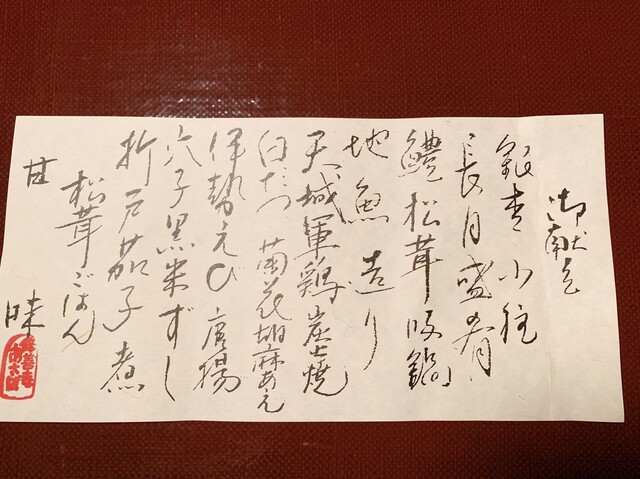 御献立
銀杏 小柱
長月盛肴
鱧松茸吸鍋
地魚造り
天城軍鶏炭火焼
白だつ 菊花胡麻あえ
伊勢えび 唐揚
穴子黒米ずし
折戸茄子 煮
松茸ごはん
甘味